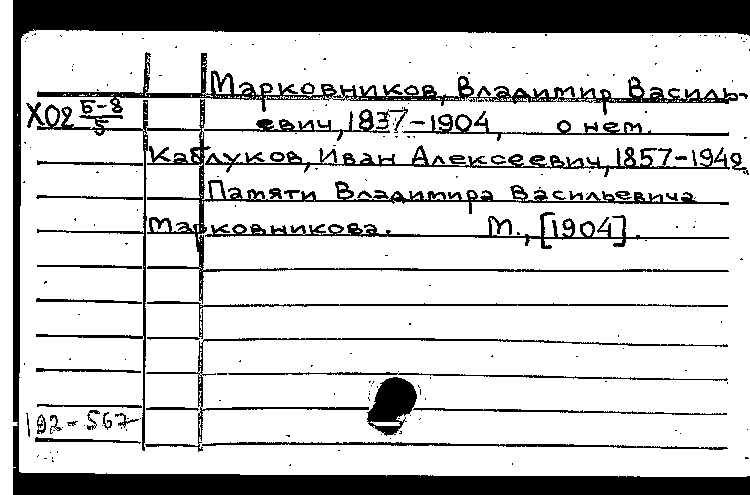 Марковников, Владимир Василь-
Х02 Б-8/5 евич, 1837-1904, о нем.
Каблуков, Иван Алексеевич, 1857-1942
Памяти Владимира Васильевича
Марковникова. М., [1904].
192-567